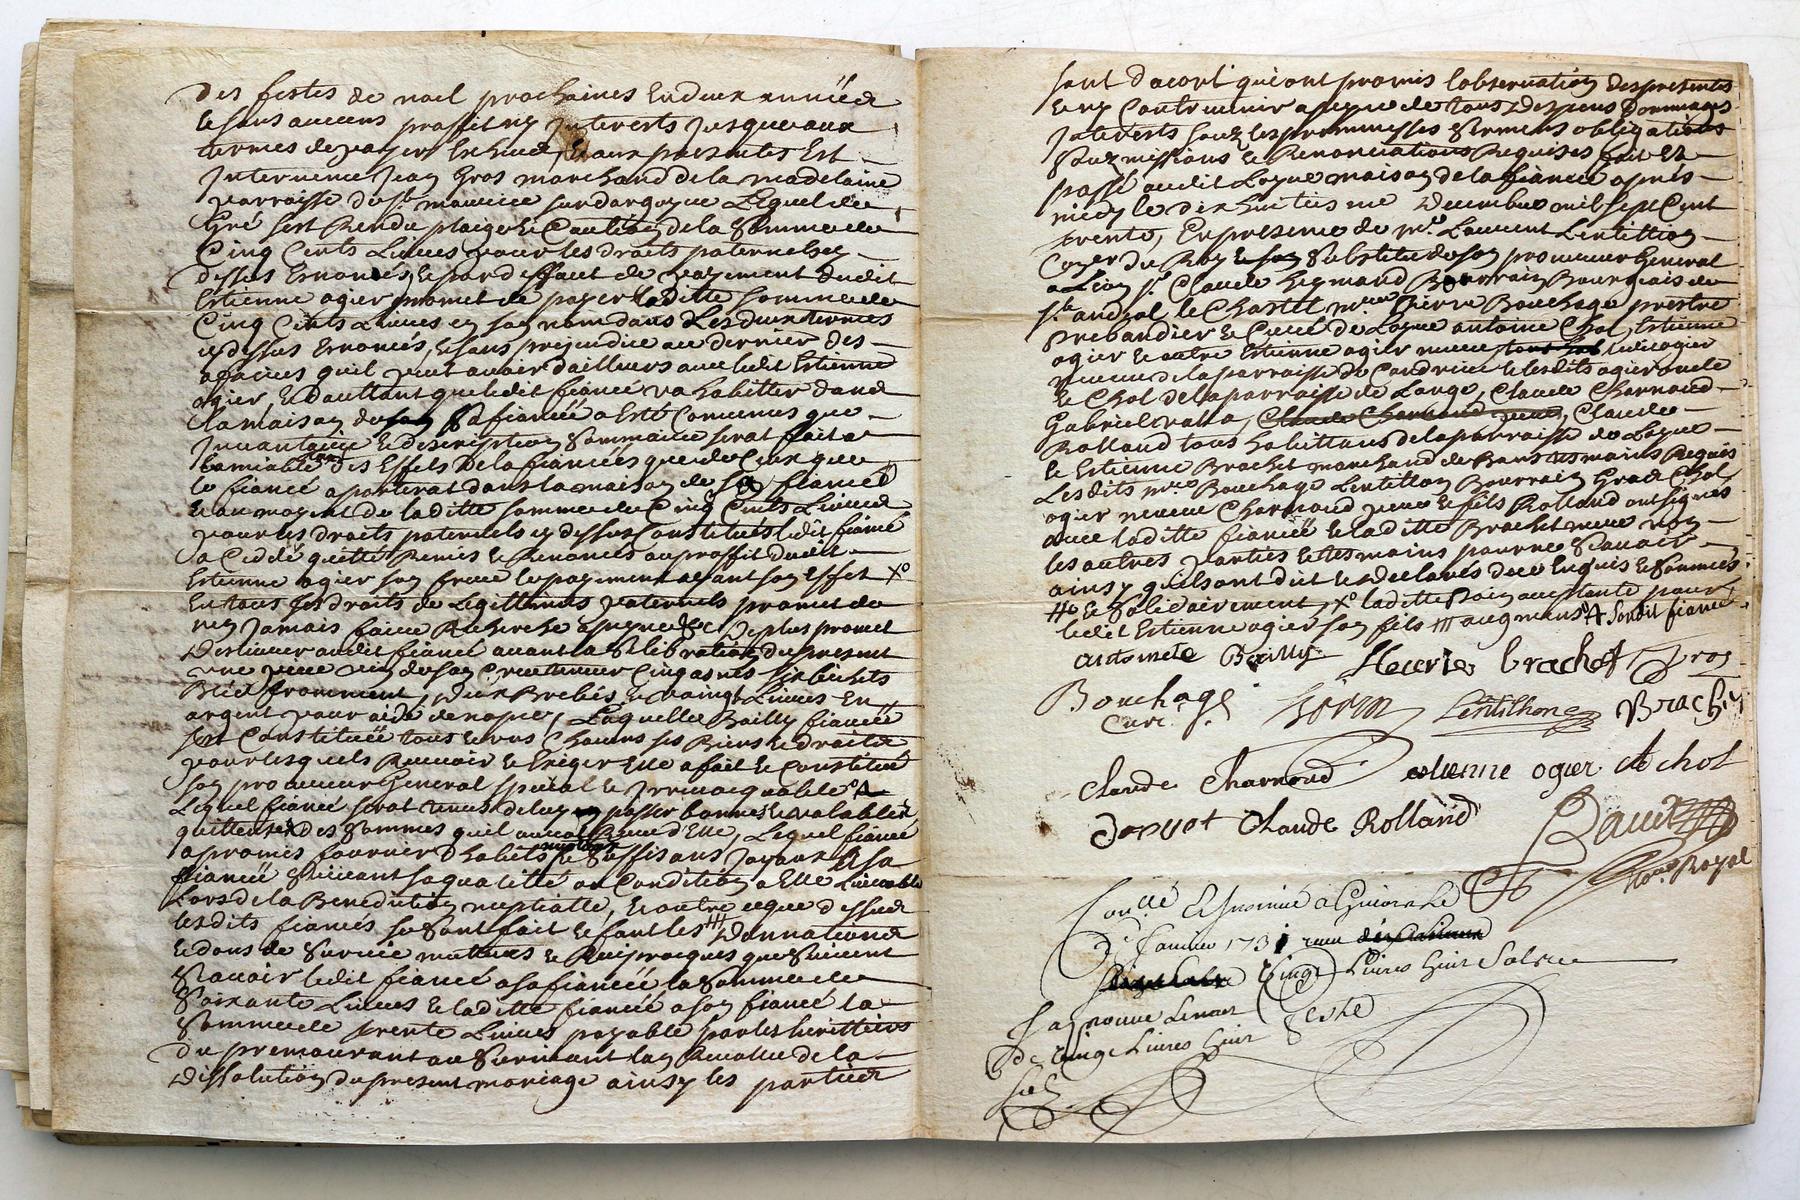 des festes de noel prochaines en deux année
et sans aucuns proffit ny interests jusqueaux
termes de payer escheus, et aux presentes est
intervenue jean gros marchand de la madelaine
parroisse de st maurice sur dargoyre Lequel de
Gré sest Rendu plaige et Caution de la Somme de
Cinq Cents Livres pour les droits paternels cy
dessus Enoncés, et par deffaut de payement dudit
Estienne ogier promet de payer laditte Somme de
Cinq Cents Livres en son nom dans Les deux termes
cydessus Enoncés, et sans prejudice au dernier des
afaires quil peut avoir dailleurs avec ledit Estienne
ogier, Et dauttant que ledit fiancé va habitter dans
la maison de sa fiancéé a Esté Convenus que
inventaire et description Sommaire serat fait a
lamiable des Effets de la fiancéé que de Ceux que
le fiancé aporterat dans la maison de sa fiancéé
et au moyen de laditte somme de Cinq Cents Livres
pour les droits paternels cy dessus Constitués ledit fiancé
a Ceddé quitté Remis et Renoncés au proffit dudit
Estienne ogier son frere le payement ayant son Effet Xo
En tous ses droits de Legittimes paternels promet de
nen jamais faire Recherche a peyne &c De plus promet
Deslivrer audit fiancé avant la Celebration du present
une piece vin de son Cru teneur Cinq asnés six bichets
Bled fromment, deux Brebis et vaingt Livres En
argent pour aide de nopces, Laquelle Bailly fiancéé
sest Constituéé tous et uns Chacuns ses Biens et droits
pour lesquels Recevoir et Exiger Elle a fait et Constitué
son procureur General special et irrevocquable A
Lequel fiancé serat tenus de luy passer bonnes et valables
quittences des Sommes quil aurat Receu d'Elle, Lequel fiancé
a promis fournir d'habits nuptiaux et Suffisans joyaux A sa
fiancéé Suivant sa qualitté et Condition a Elle Livrable
Lors de la Benediction nuptialle, Et outre ce que dessus
lesdits fiancés se Sont fait et font les /// Donnations
et dons de Survie mutuels et Reciprocques que Suivent
Scavoir ledit fiancé a sa fiancéé la Somme de
Soixante Livres et laditte fiancéé a son fiancé la
Somme de trente Livres payable par les herittiers
du premourant au Survivant lan Revolu de la
dissolution du present mariage ainsy les parties
sont dacort qui ont promis lobservation des presentes
et ny Contrevenir a peyne de tous despens dommages
jnterests sous les prommesses sermens obligations
Soumissions et Renonciations Requises fait Et
passé audit Loyre maison de la fiancéé apres
midy le dix huitiesme decembre mil sept Cent
trente, En presence de mr Laurent Lentillon
Coyer du Roy Substitud de son procureur General
a Lion sr Claude heymand Bourrain Bourgeois de
st andeol le Chastel mre pierre Bouchage prestre
prebandier et Curé de Loyre antoine Chol, Estienne
ogier et autre Estienne ogier neveu ledit ogier
neveu de la parroisse de Condrieu et lesdits ogier oncle
et Chol de la parroisse de Longe, Claude Charnoud
Gabriel valla, Claude
Rolland tous habittans de la parroisse de Loyre
et Estienne Brachet marchand de Bans tesmoins Requis
Lesdits mre Bouchage Lentillon Bourrain Gros Chol
ogier neveu Charnoud pere et fils Rolland ont signés
avec laditte fiancéé et laditte Brachet mere non
les autres parties et tesmoins pour ne Scavoir
ainsy quils ont dit et declarés de ce Enquis et Sommés
et Solidairement, Xo laditte Roin acceptante pour
ledit Estienne ogier son fils /// augmens A sondit fiancé
Antomete Bailly Heurie brachet Gros
Bouchage
Curé Lentillon Brachet
Claude Charnoud estienne ogier A chol
Claude Rolland
Nore Royal
Conllé Et insinué a Givors Le
Janvier 1731 receu
Vingt Livres huit Sols
Jay receu
de vingt Livres huit
Sols